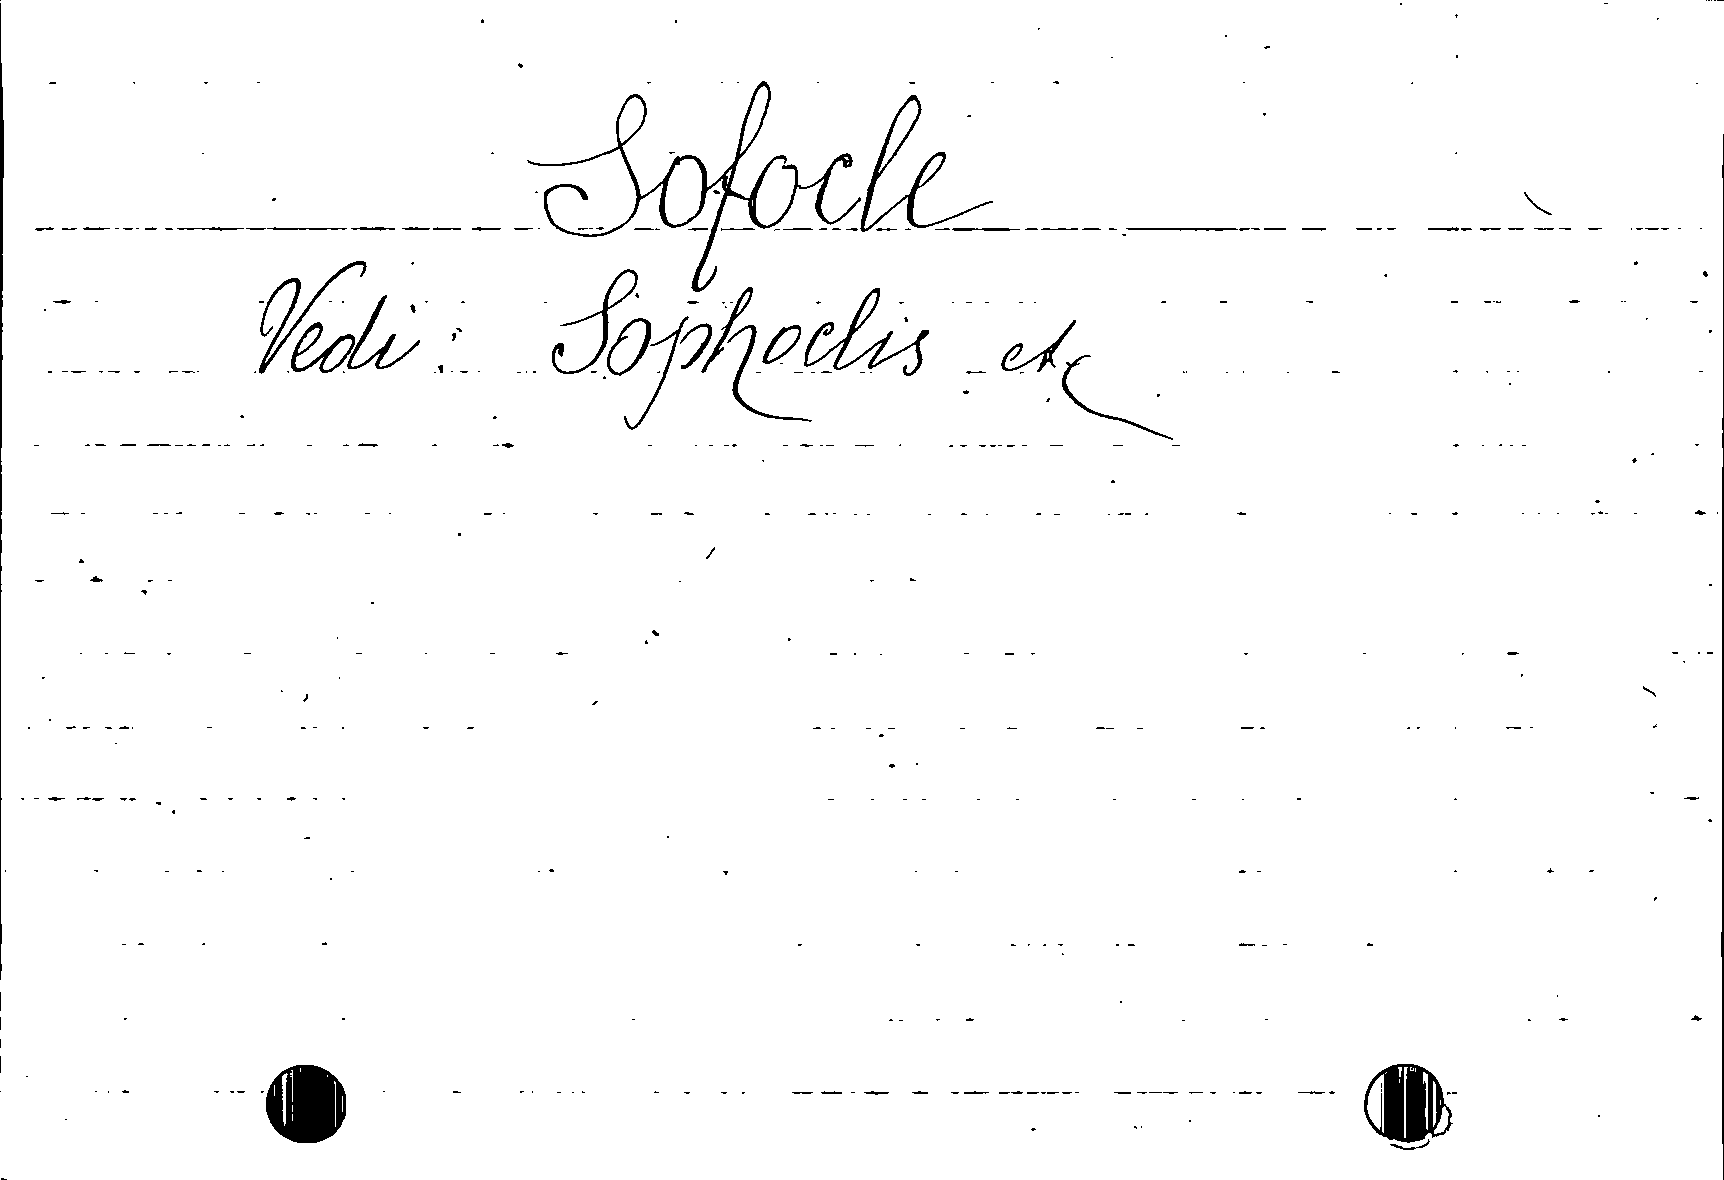 Sofocle
Vedi: Sophoclis etc